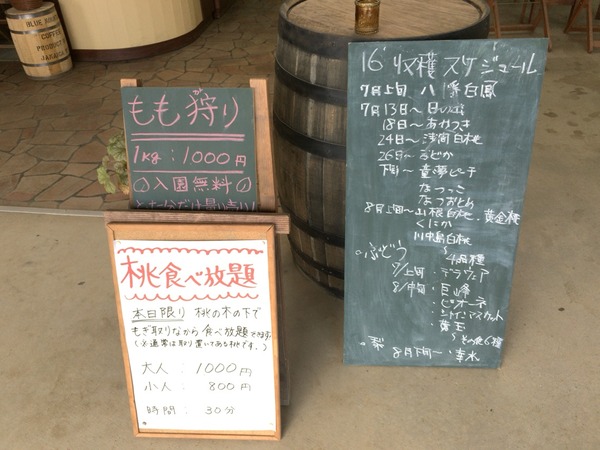 BLUE MOUNTAIN
COFFEE
PRODUCT OF
JAMAICA
もも狩り
1kg:1000円
○入園無料○
桃食べ放題
本日限り 桃の木の下で
もぎ取りながら食べ放題できます。
(※通常は取り置いてある桃です。)
大人: 1000円
小人: 800円
時間: 30分
16' 収穫スケジュール
7月上旬 八幡白鳳
7月13日~ 日川白鳳
18日~ あかつき
24日~ 浅間白桃
26日~ まどか
下旬~ 童夢ピーチ
なつっこ
なつおとめ
8月上旬~ 山根白桃、黄金桃
くにか
川中島白桃
~4品種
○ぶどう
8/上旬・デラウェア
8/中旬・巨峰
・ピオーネ
・シャインマスカット
・藤玉
~その他6種
○梨 8月下旬~ 幸水